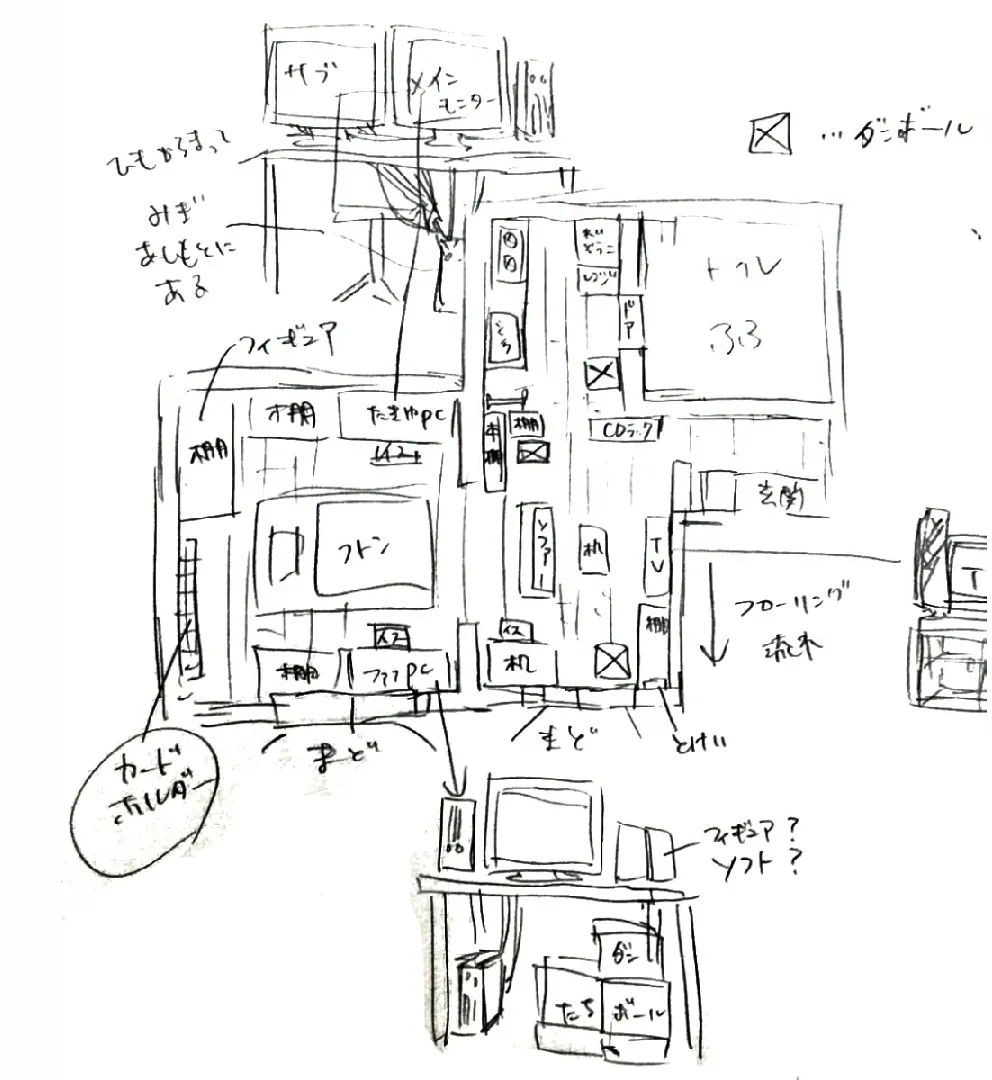 サブ
メイン
モニター
…ダンボール
ひもからまって
みぎ
あしもとに
ある
れい
ぞうこ
レンジ
ドア
トイレ
ふろ
フィギュア
本棚
たきやPC
イス
棚
本棚
棚
CDラック
玄関
フトン
ソファー
机
TV
T
フローリング
流れ
棚
イス
イス
机
まど
まど
とけい
カード
ホルダー
フィギュア?
ソフト?
ダン
たち
ボール